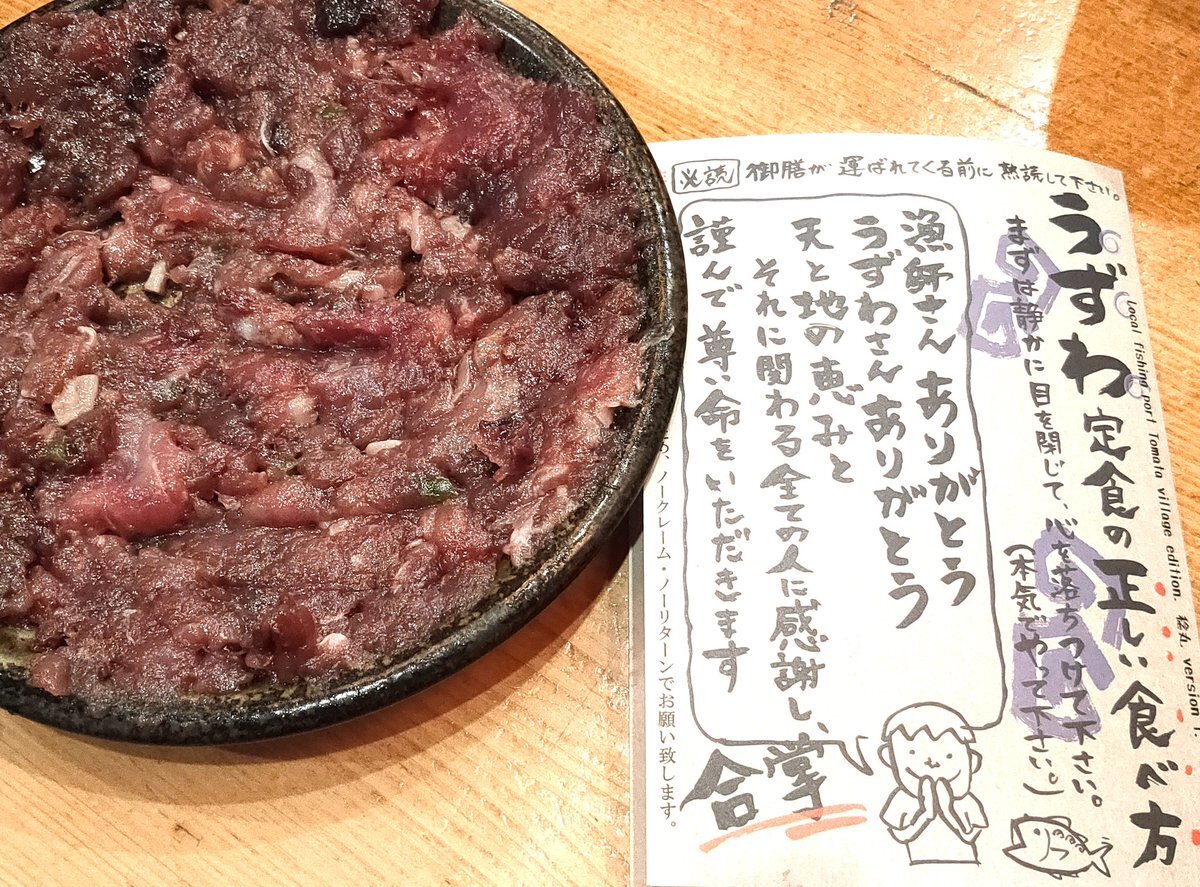 必読 御膳が運ばれてくる前に熟読して下さい。
うずわ定食の正しい食べ方
Local fishing port Tomato village edition. 稔丸 version 1.
まずは静かに目を閉じて、心を落ちつけて下さい。
(本気でやって下さい。)
漁師さんありがとう
うずわさんありがとう
天と地の恵みと
それに関わる全ての人に感謝し、
謹んで尊い命をいただきます
合掌
、ノークレーム・ノーリターンでお願い致します。